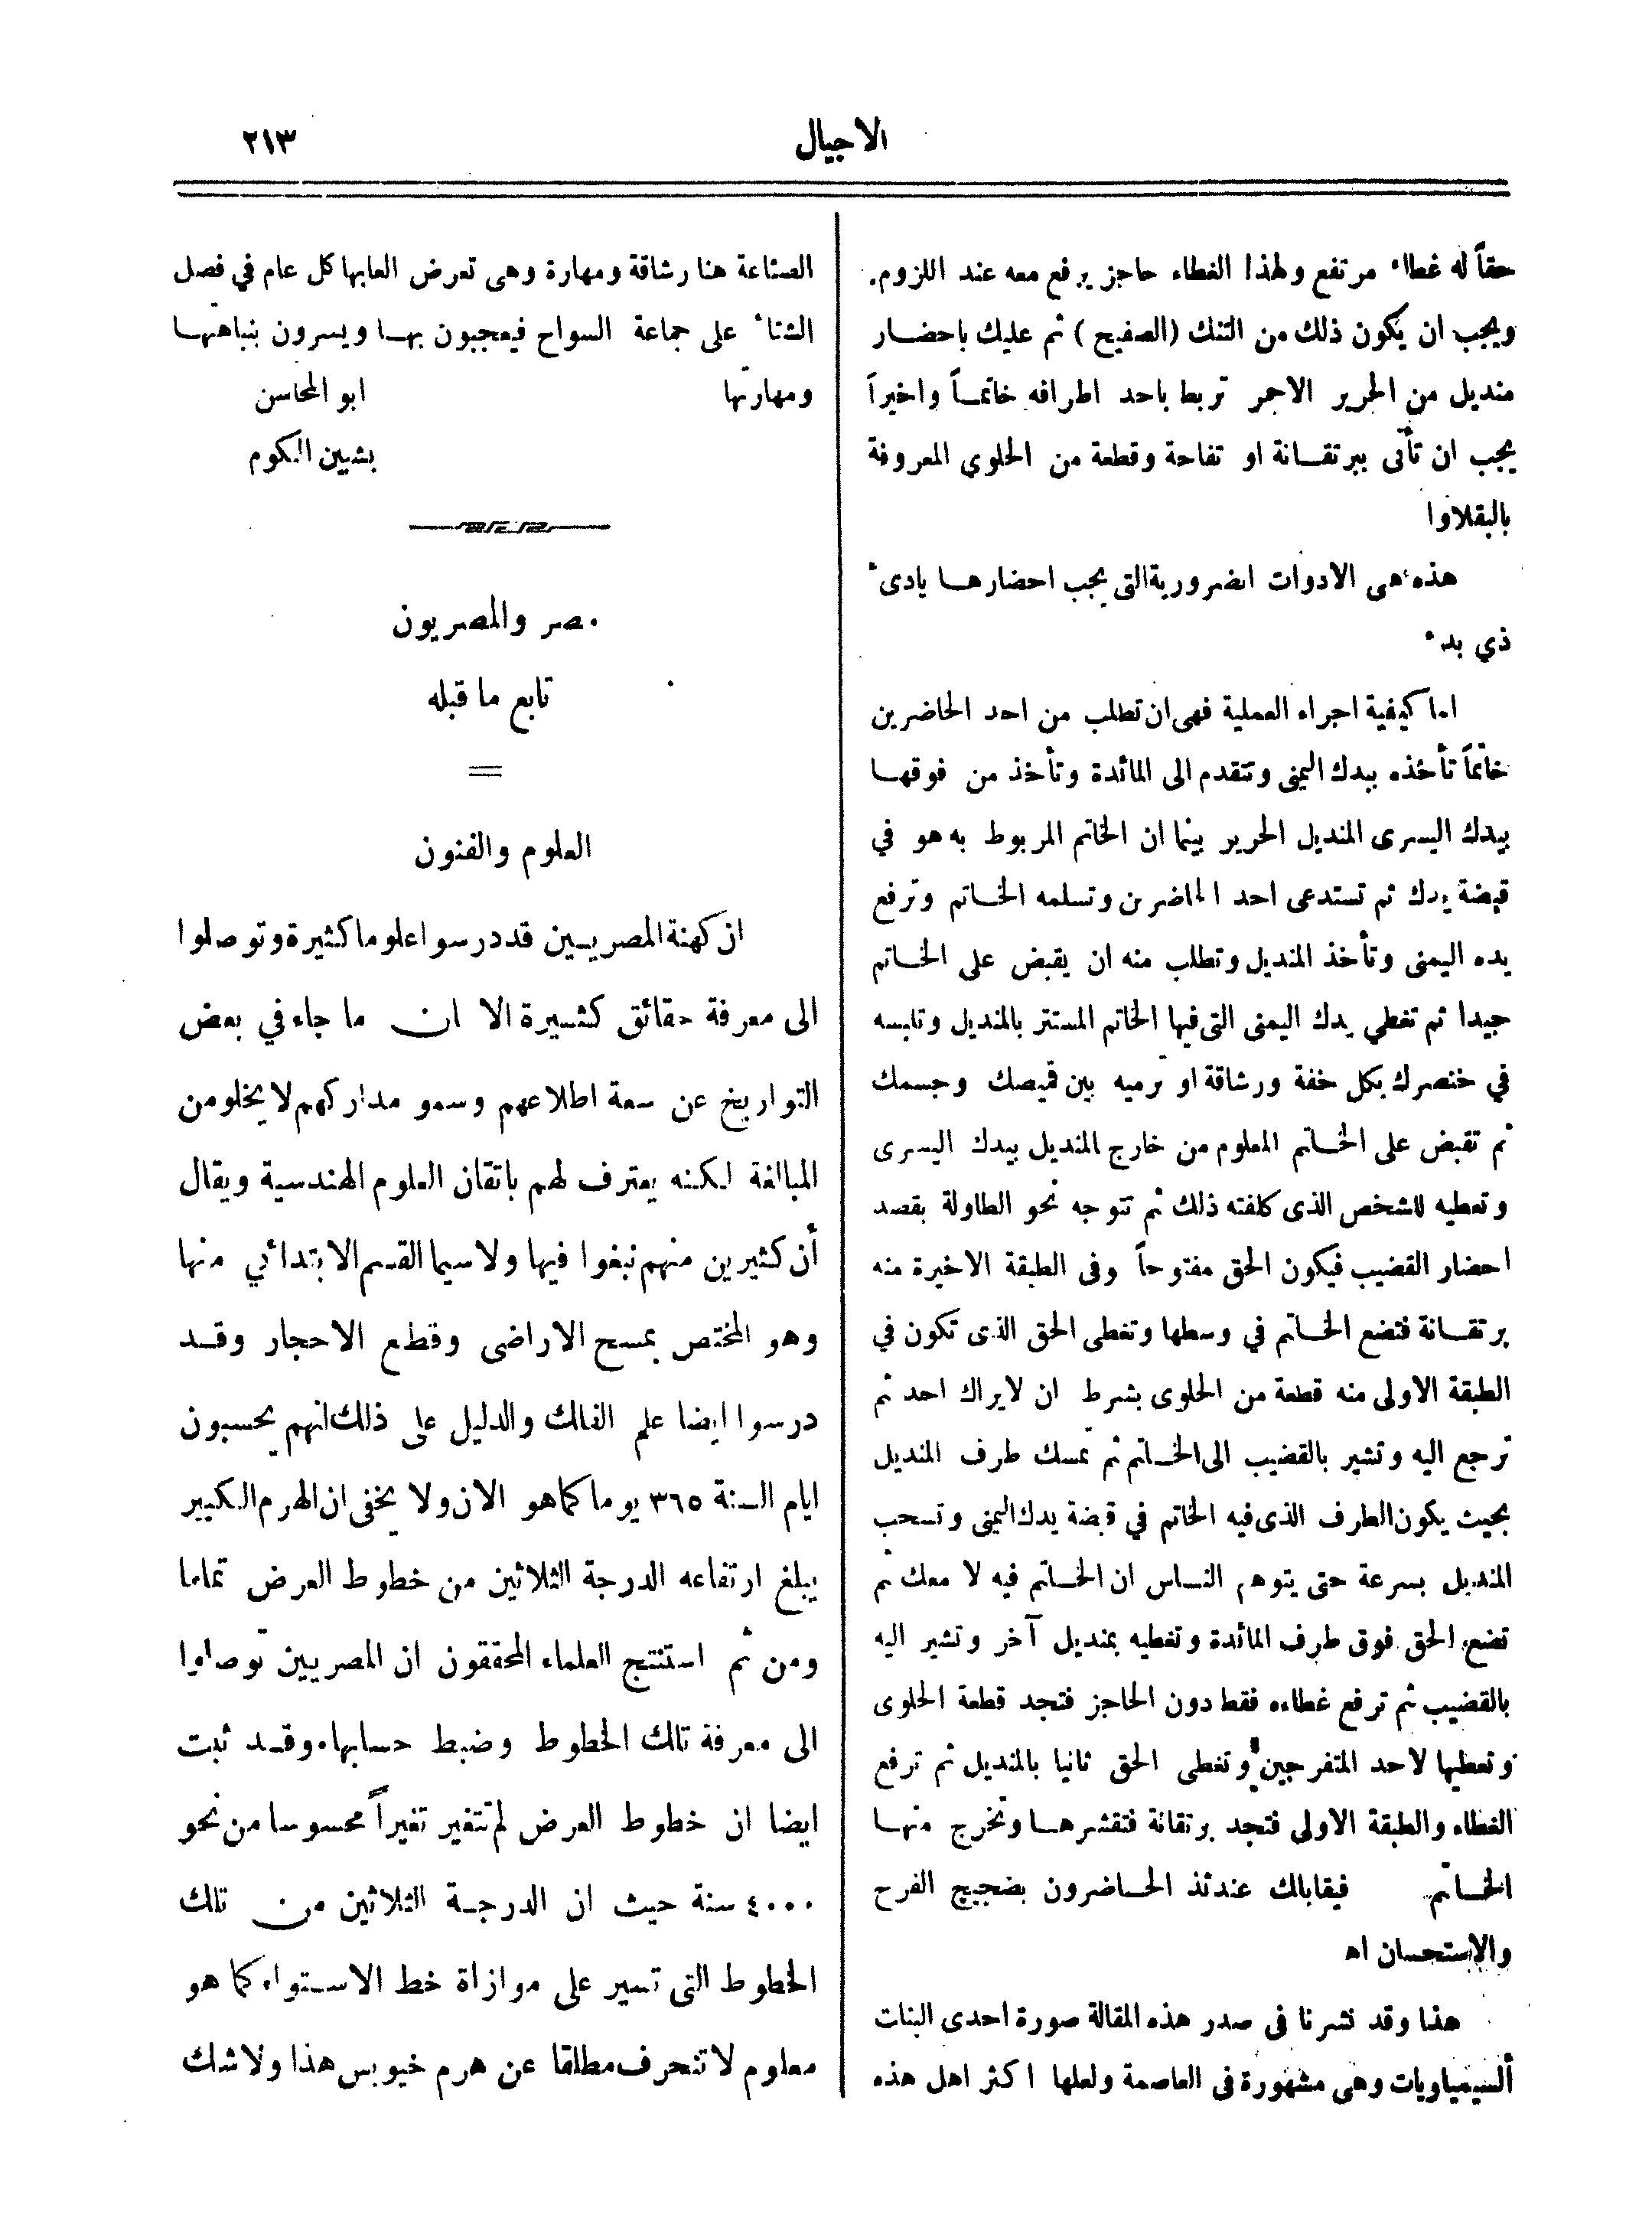 الاجيال
٢١٣
حقاً له غطاء مرتفع ولهذا الغطاء حاجز يرفع معه عند اللزوم.
ويجب ان يكون ذلك من التنك (الصفيح) ثم عليك باحضار
منديل من الحرير الاحمر تربط باحد اطرافه خاتماً واخيراً
يجب ان تأتى ببرتقانة او تفاحة وقطعة من الحلوى المعروفة
بالبقلاوا
هذه هى الادوات الضرورية التى يجب احضارها بادىء
ذي بدء
اما كيفية اجراء العملية فهى ان تطلب من احد الحاضرين
خاتماً تأخذه بيدك اليمنى وتتقدم الى المائدة وتأخذ من فوقها
بيدك اليسرى المنديل الحرير بينما ان الخاتم المربوط به هو في
قبضة يدك ثم تستدعى احد الحاضرين وتسلمه الخاتم وترفع
يده اليمنى وتأخذ المنديل وتطلب منه ان يقبض على الخاتم
جيدا ثم تغطي يدك اليمنى التى فيها الخاتم المستتر بالمنديل وتلبسه
في خنصرك بكل خفة ورشاقة او ترميه بين قميصك وجسمك
ثم تقبض على الخاتم المعلوم من خارج المنديل بيدك اليسرى
وتعطيه للشخص الذى كلفته ذلك ثم تتوجه نحو الطاولة بقصد
احضار القضيب فيكون الحق مفتوحاً وفى الطبقة الاخيرة منه
برتقانة فتضع الخاتم في وسطها وتغطى الحق الذى تكون في
الطبقة الاولى منه قطعة من الحلوى بشرط ان لا يراك احد ثم
ترجع اليه وتشير بالقضيب الى الخاتم ثم تمسك طرف المنديل
بحيث يكون الطرف الذى فيه الخاتم في قبضة يدك اليمنى وتسحب
المنديل بسرعة حتى يتوهم الناس ان الخاتم فيه لا معك ثم
تضع الحق فوق طرف المائدة وتغطيه بمنديل آخر وتشير اليه
بالقضيب ثم ترفع غطاءه فقط دون الحاجز فتجد قطعة الحلوى
وتعطيها لاحد المتفرجين وتغطى الحق ثانيا بالمنديل ثم ترفع
الغطاء والطبقة الاولى فتجد برتقانة فتقشرها وتخرج منها
الخاتم فيقابلك عندئذ الحاضرون بضجيج الفرح
والاستحسان اه
هذا وقد نشرنا فى صدر هذه المقالة صورة احدى البنات
السيمياويات وهى مشهورة فى العاصمة ولعلها اكثر اهل هذه
الصناعة هنا رشاقة ومهارة وهى تعرض العابها كل عام في فصل
الشتاء على جماعة السواح فيعجبون بها ويسرون بنباهتها
ومهارتها ابو المحاسن
بشبين الكوم
مصر والمصريون
تابع ما قبله
العلوم والفنون
ان كهنة المصريين قد درسوا علوما كثيرة وتوصلوا
الى معرفة حقائق كثيرة الا ان ما جاء في بعض
التواريخ عن سعة اطلاعهم وسمو مداركهم لا يخلو من
المبالغة لكنه يعترف لهم باتقان العلوم الهندسية ويقال
أن كثيرين منهم نبغوا فيها ولا سيما القسم الابتدائي منها
وهو المختص بمسح الاراضى وقطع الاحجار وقد
درسوا ايضا علم الفلك والدليل على ذلك انهم يحسبون
ايام السنة ٣٦٥ يوما كما هو الان ولا يخفى ان الهرم الكبير
يبلغ ارتفاعه الدرجة الثلاثين من خطوط العرض تماما
ومن ثم استنتج العلماء المحققون ان المصريين توصلوا
الى معرفة تلك الخطوط وضبط حسابها. وقد ثبت
ايضا ان خطوط العرض لم تتغير تغيراً محسوسا من نحو
٤٠٠٠ سنة حيث ان الدرجة الثلاثين من تلك
الخطوط التى تسير على موازاة خط الاستواء كما هو
معلوم لا تنحرف مطلقا عن هرم خيوبس هذا ولا شك